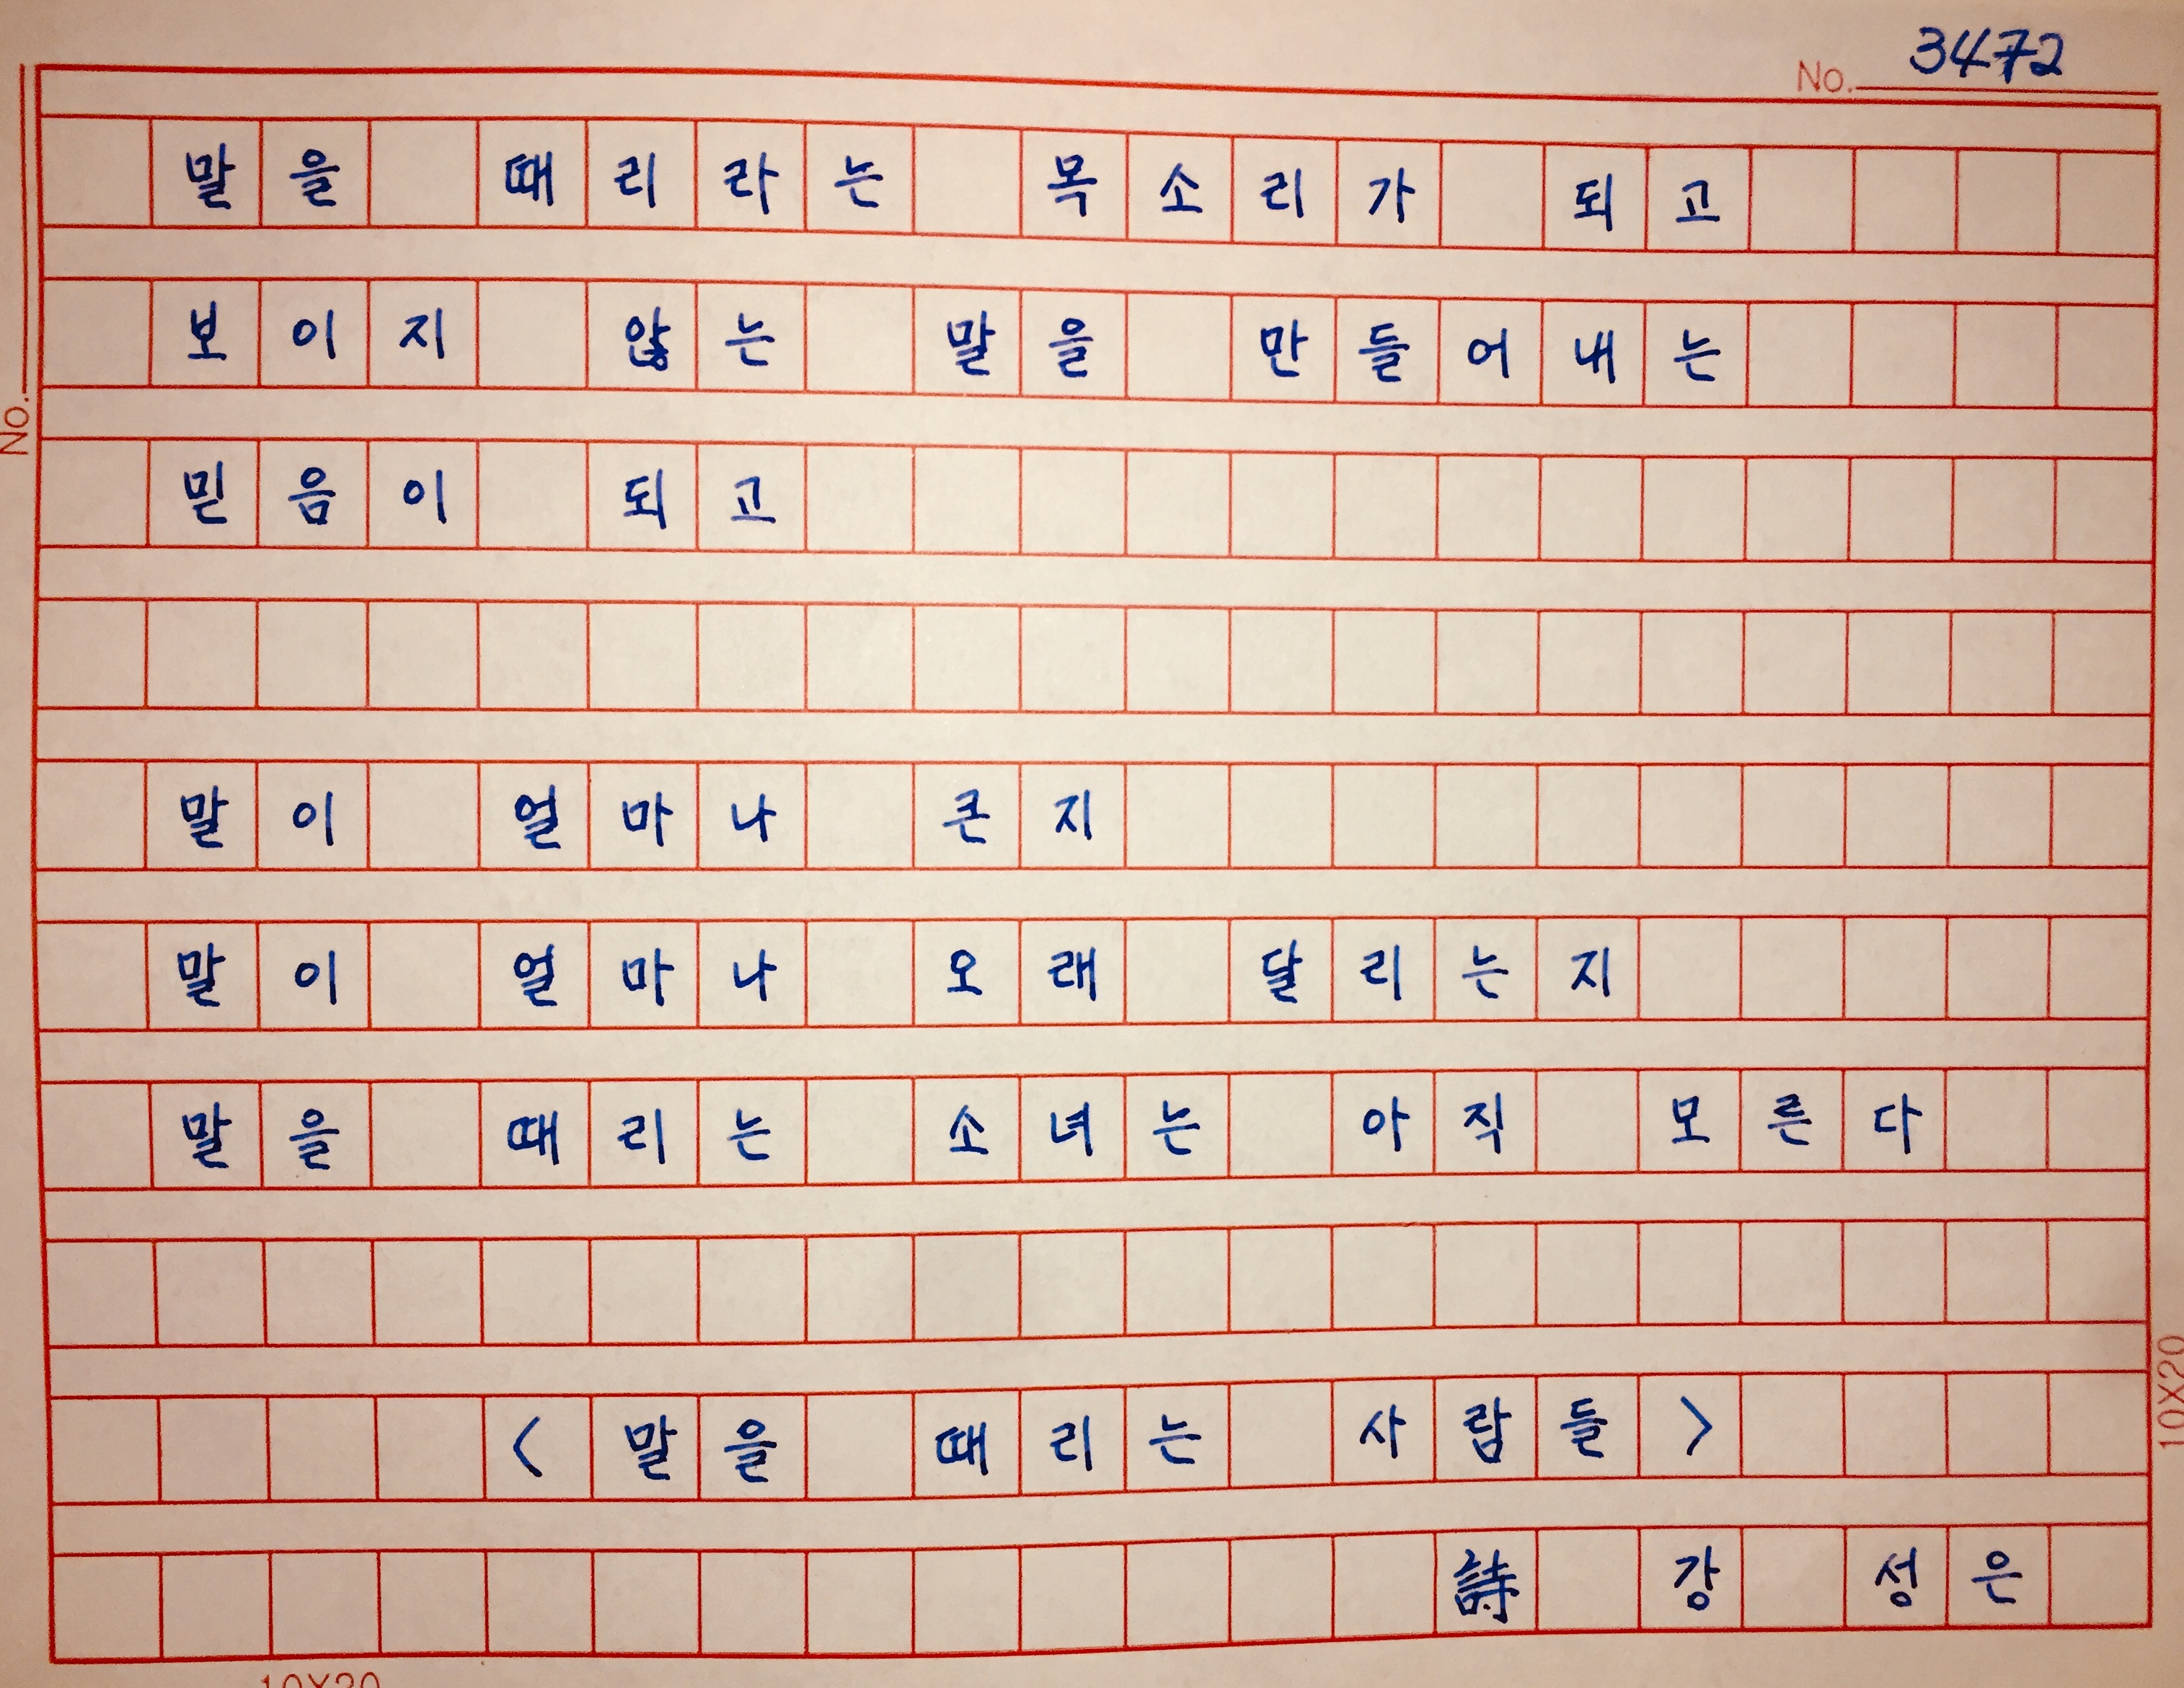 No. 3472
말을 때리라는 목소리가 되고
보이지 않는 말을 만들어내는
믿음이 되고
말이 얼마나 큰지
말이 얼마나 오래 달리는지
말을 때리는 소녀는 아직 모른다
<말을 때리는 사람들>
詩 강 성은
No.
10X20
10X20